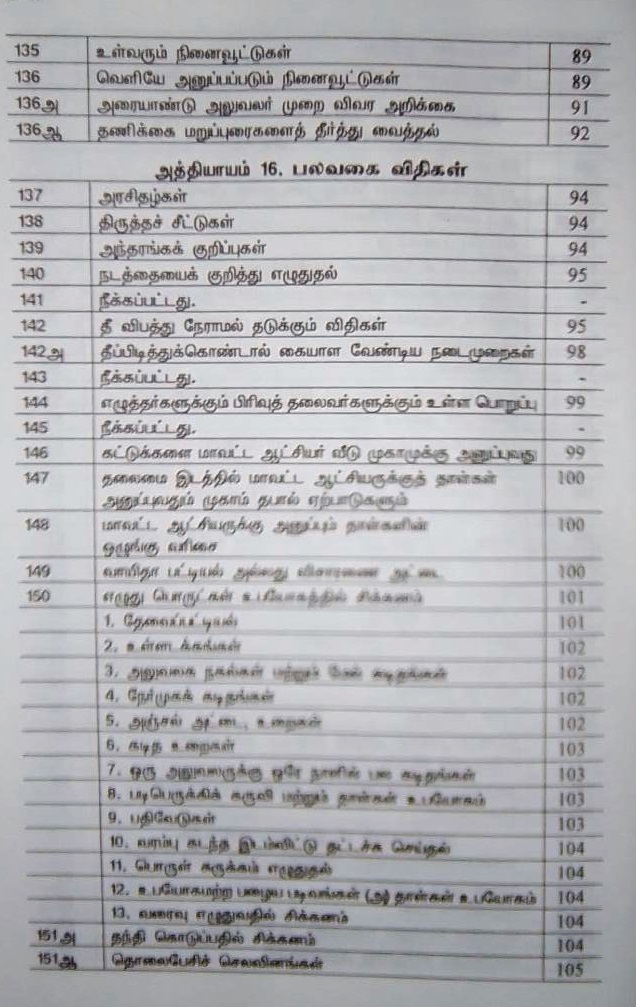 135 உள்வரும் நினைவூட்டுகள் 89
136 வெளியே அனுப்பப்படும் நினைவூட்டுகள் 89
136அ அரையாண்டு அலுவலர் முறை விவர அறிக்கை 91
136ஆ தணிக்கை மறுப்புரைகளைத் தீர்த்து வைத்தல் 92
அத்தியாயம் 16. பலவகை விதிகள்
137 அரசிதழ்கள் 94
138 திருத்தச் சீட்டுகள் 94
139 அந்தரங்கக் குறிப்புகள் 94
140 நடத்தையைக் குறித்து எழுதுதல் 95
141 நீக்கப்பட்டது. -
142 தீ விபத்து நேராமல் தடுக்கும் விதிகள் 95
142அ தீப்பிடித்துக்கொண்டால் கையாள வேண்டிய நடைமுறைகள் 98
143 நீக்கப்பட்டது. -
144 எழுத்தர்களுக்கும் பிரிவுத் தலைவர்களுக்கும் உள்ள பொறுப்பு 99
145 நீக்கப்பட்டது. -
146 கட்டுக்களை மாவட்ட ஆட்சியர் வீடு முகாமுக்கு அனுப்புவது 99
147 தலைமை இடத்தில் மாவட்ட ஆட்சியருக்குத் தாள்கள் 100
அனுப்புவதும் முகாம் தபால் ஏற்பாடுகளும்
148 மாவட்ட ஆட்சியருக்கு அனுப்பும் தாள்களின் 100
ஒழுங்கு வரிசை
149 வாயிதா பட்டியல் அல்லது விசாரணை அட்டை 100
150 எழுது பொருட்கள் உபயோகத்தில் சிக்கனம் 101
1. தேவைப்பட்டியல் 101
2. உள்ளடக்கங்கள் 102
3. அலுவலக நகல்கள் மற்றும் மேல் கடிதங்கள் 102
4. நேர்முகக் கடிதங்கள் 102
5. அஞ்சல் அட்டை, உறைகள் 102
6. கடித உறைகள் 103
7. ஒரு அலுவலருக்கு ஒரே நாளில் பல கடிதங்கள் 103
8. படிபெருக்கிக் கருவி மற்றும் தாள்கள் உபயோகம் 103
9. பதிவேடுகள் 103
10. வரம்பு கடந்த இடம்விட்டு தட்டச்சு செய்தல் 104
11. பொருள் சுருக்கம் எழுதுதல் 104
12. உபயோகமற்ற பழைய படிவங்கள் (அ) தாள்கள் உபயோகம் 104
13. வரைவு எழுதுவதில் சிக்கனம் 104
151அ தந்தி கொடுப்பதில் சிக்கனம் 104
151ஆ தொலைபேசிச் செலவினங்கள் 105